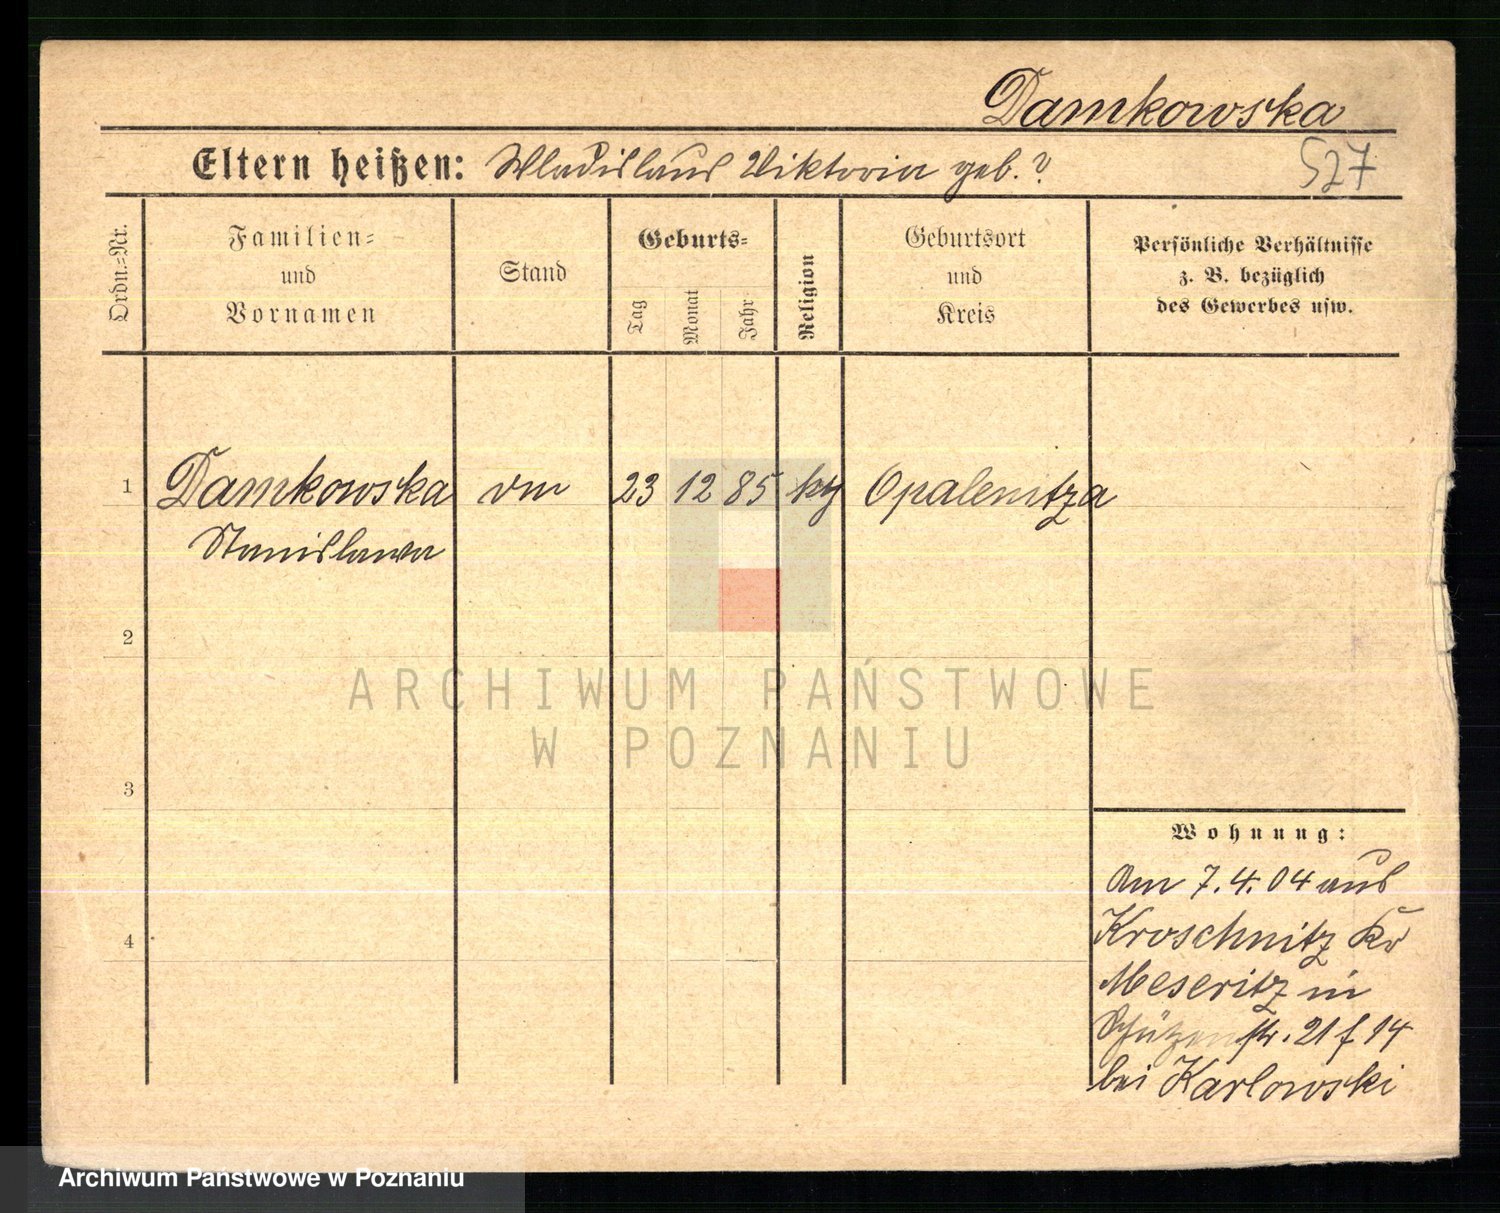 Damkowska
Eltern heißen: Wladislaus Viktoria geb. ?
527
Ordn.-Nr.
Familien-
und
Vornamen
Stand
Geburts-
Tag
Monat
Jahr
Religion
Geburtsort
und
Kreis
Persönliche Verhältnisse
z. B. bezüglich
des Gewerbes usw.
1 Damkowska 23 12 85 Opalenitza
Stanislawa
2
3
4
Wohnung:
Am 7.4.04 aus
Kroschnitz Kr
Meseritz in
Schützenstr. 21 f 14
bei Karlowski
ARCHIWUM PAŃSTWOWE
W POZNANIU
Archiwum Państwowe w Poznaniu